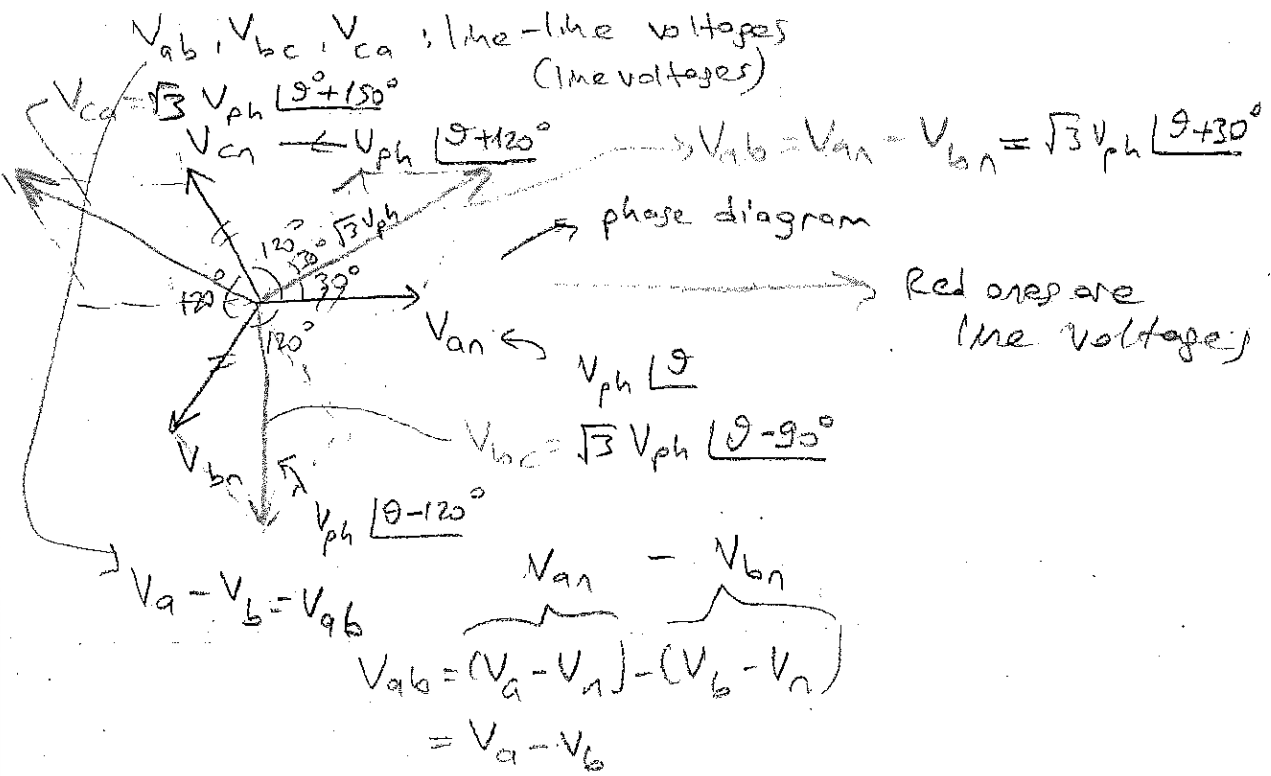 Vab, Vbc, Vca : line-line voltages
(line voltages)
Vca = √3 Vph ∠ϑ°+150°
Vcn ← Vph ∠ϑ+120°
Vab = Van - Vbn = √3 Vph ∠ϑ+30°
√3 Vph
phase diagram
120°
30°
30°
120°
120°
Red ones are
line voltages
Van
Vph ∠ϑ
Vbc = √3 Vph ∠ϑ-90°
Vbn
Vph ∠θ-120°
Va - Vb = Vab
Van - Vbn
Vab = (Va - Vn) - (Vb - Vn)
= Va - Vb